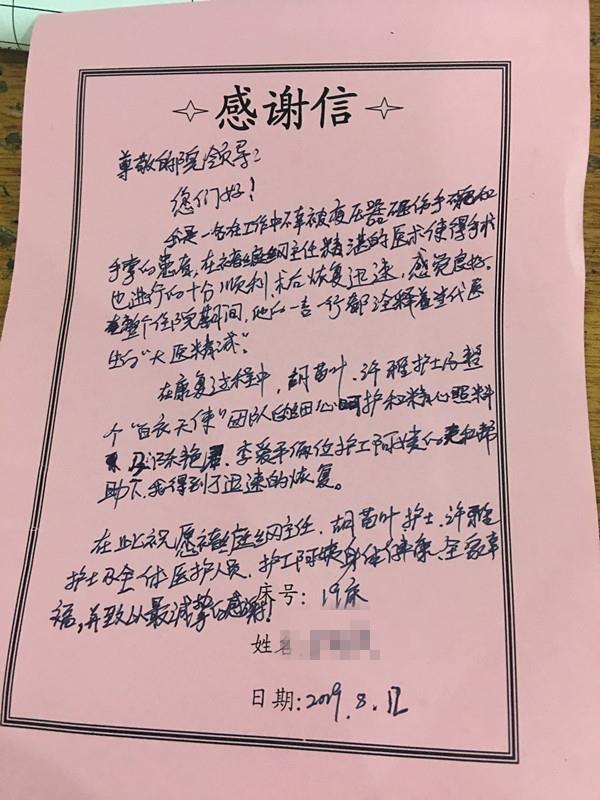 感谢信
尊敬的院领导:
您们好!
我是一名在工作中不幸被变压器碾伤手碗和
手掌的患者,在禇庭纲主任精湛的医术使得手术
也进行的十分顺利,术后恢复迅速,感觉良好。
在整个住院期间,他的一言一行都诠释着当代医
生的“大医精诚”。
在康复过程中,胡苗叶、许雅护士及整
个“白衣天使”团队的细心呵护和精心照料
及陈艳 、李爱平俩位护工阿姨的 和帮
助下,我得到了迅速的恢复。
在此祝愿禇庭纲主任、胡苗叶护士、许雅
护士及全体医护人员、护工阿姨身体健康、全家幸
福,并致以最诚挚的感谢!
床号: 19床
姓名
日期: 2019.8.12